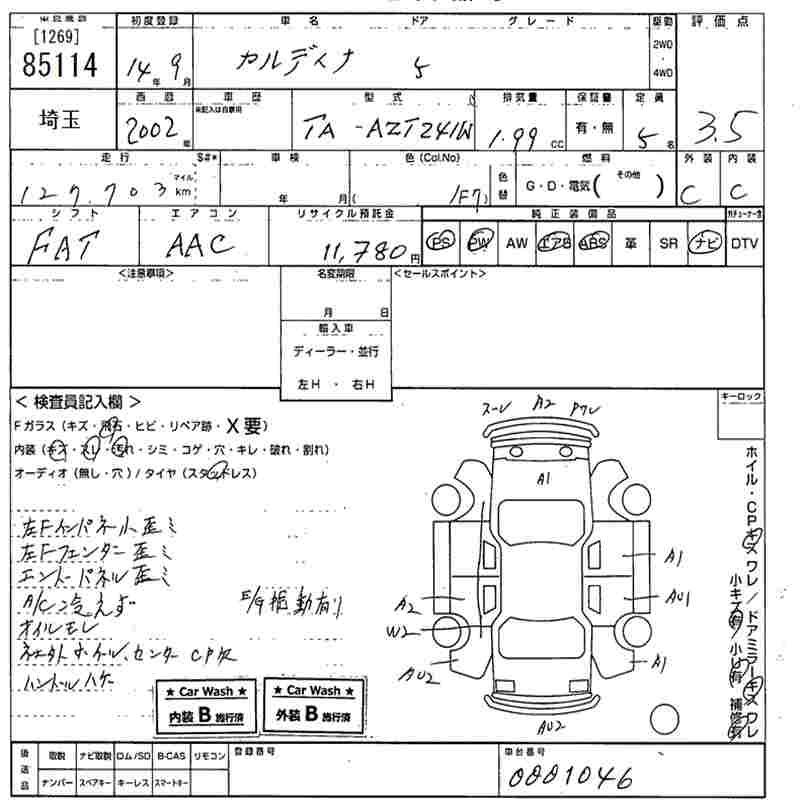 [1269]
85114
初度登録 車名 ドア グレード 駆動 評価点
14年 9月 カルディナ 5 2WD ・ 4WD
埼玉
西暦 車歴 型式 排気量 保証書 定員
未記入は自家用
2002年 TA-AZT241W 1.99 CC 有・無 5名 3.5
走行 S#* 車検 色(Col.No) 色替 燃料 外装 内装
127,703 マイル km 年 月 ( 1F7) G・D・電気( その他 ) C C
シフト エアコン リサイクル預託金 純正装備品
FAT AAC 11,780円 PS PW AW エアB ABS 革 SR ナビ DTV
<注意事項> 名変期限 <セールスポイント>
月 日
輸入車
ディーラー・並行
左H ・ 右H
<検査員記入欄> キーロック
Fガラス(キズ・飛石・ヒビ・リペア跡・X要)
内装(キズ・スレ・汚れ・シミ・コゲ・穴・キレ・破れ・割れ)
オーディオ(無し・穴)/タイヤ(スタッドレス)
左Fインパネ小歪ミ
左Fフェンダー歪ミ
エンドパネル歪ミ
A/C冷えず E/G振動有り
オイルモレ
センターCP欠
ハンドルハゲ
スーレ A2 Pワレ
A1
A1
A2 AU1
W2
AU2 A1
AU2
ホイル・CPキズワレ/ドアミラーキズワレ
小キズ有/小U有 補修有
★ Car Wash ★ ★ Car Wash ★
内装 B 施行済 外装 B 施行済
後送品 取説 ナビ取説 ロム/SD B-CAS リモコン 登録番号 車台番号
ナンバー スペアキー キーレス スマートキー 0001046